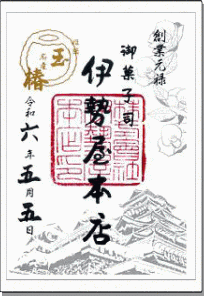 創業元様
御菓子司
伊勢屋本店
玉椿
令和六年五月五日